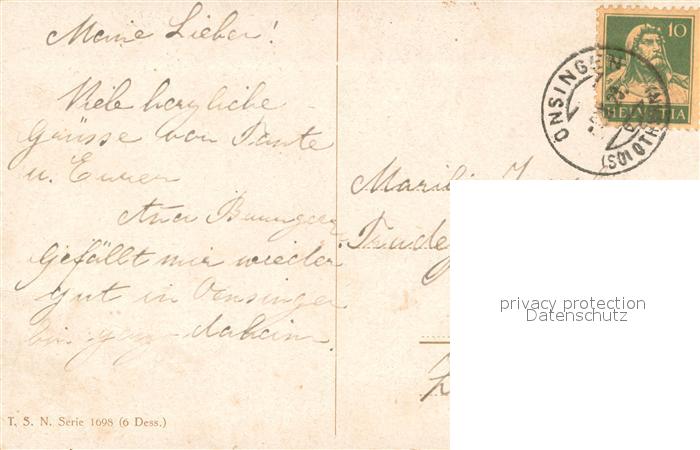 Meine Lieben!
Viele herzliche
Grüsse von Tante
u. Eurer
Gefällt mir wieder
gut in Oensingen
bin ganz daheim.
T. S. N. Serie 1698 (6 Dess.)
10
HELVETIA
ÖNSINGEN
(SOLOTHURN)
Trudy
privacy protection
Datenschutz